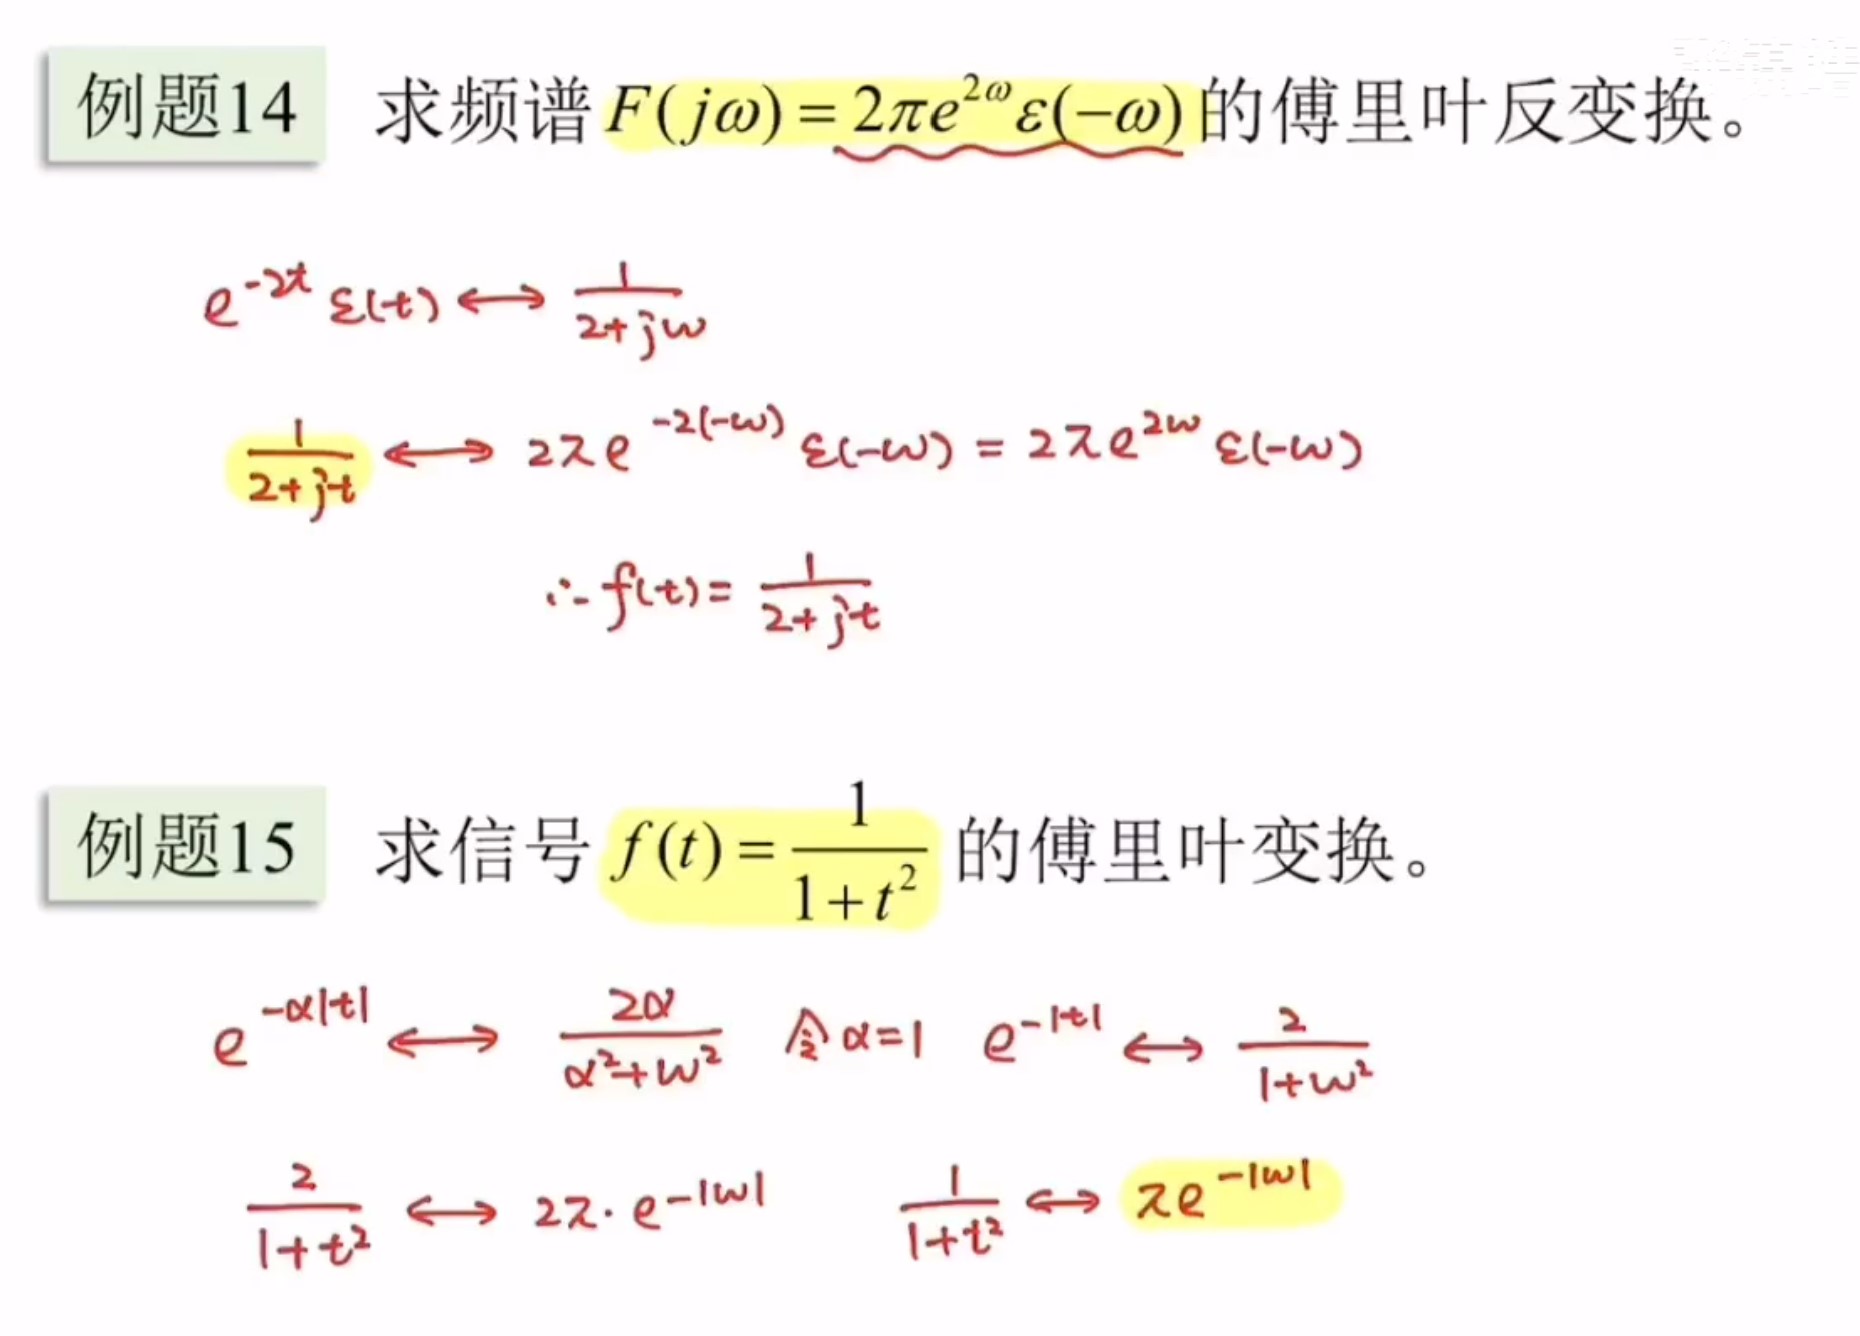 例题14 求频谱 F(jω) = 2πe^{2ω}ε(−ω) 的傅里叶反变换。
e^{-2t} ε(t) ↔ 1/(2+jω)
1/(2+jt) ↔ 2πe^{-2(-ω)} ε(-ω) = 2πe^{2ω} ε(-ω)
∴ f(t) = 1/(2+jt)
例题15 求信号 f(t) = 1/(1+t²) 的傅里叶变换。
e^{-α|t|} ↔ 2α/(α²+ω²) 令α=1 e^{-|t|} ↔ 2/(1+ω²)
2/(1+t²) ↔ 2π·e^{-|ω|} 1/(1+t²) ↔ πe^{-|ω|}